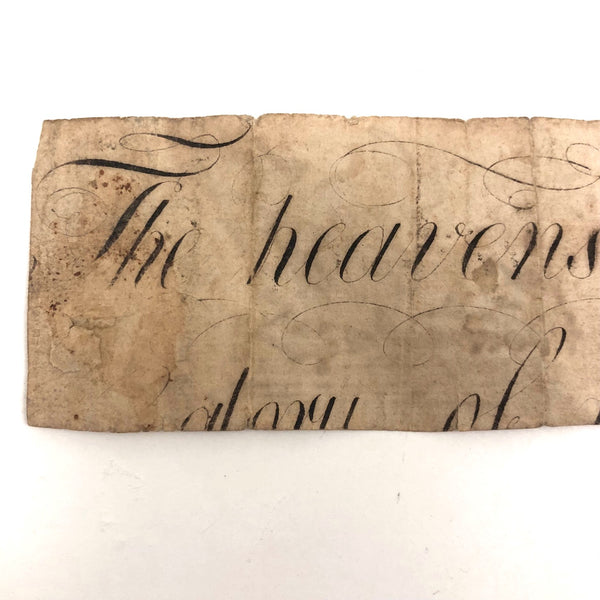 The heavens
glory of